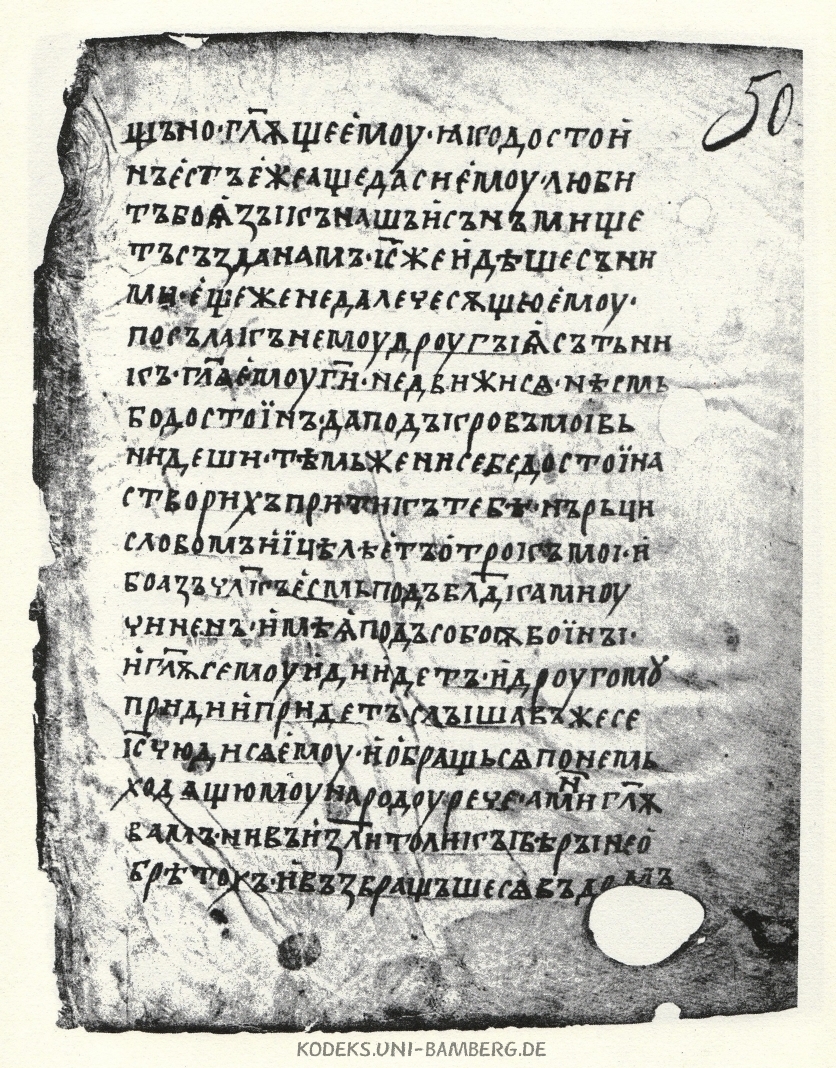 50
щъно·гл҃ѫщеемоу·ꙗкодостои
нъестъежеащедаснемоу·люби
тъбоѩзъıкънашъисънъмище
тъсъзданамъ·ıс҃жеидѣшесъни
ми·ещеженедалечесѫщюемоу·
посълакънемоудроугъıѩсътьни
къ·гл҃ѧемоугн҃·недвижисѧ·нѣсмь
бодостоїнъ·даподъкровъмоıвь
нидеши·тѣмьженисебедостоїна
створихъпритикътебѣ·нърьци
словомъиїцѣлѣетъотрокъмоı·и
боазъчл҃къесмьподъвлд҃камноу
чиненъ·имѣѩподъсобоѭвоїнъı·
игл҃ѫсемоуидиидетъ·идроугомꙋ
придиипридетъслъıшавъжесе
ıс҃чюдисѧемоу·иобращьсѧпонемь
ходѧщюмоународоурече·амнигл҃ѫ
вамъ·нивъиꙁлитоликъıвѣръıнео
брѣтохъ·ивъзвращъшесѧвъдомъ
KODEKS.UNI-BAMBERG.DE